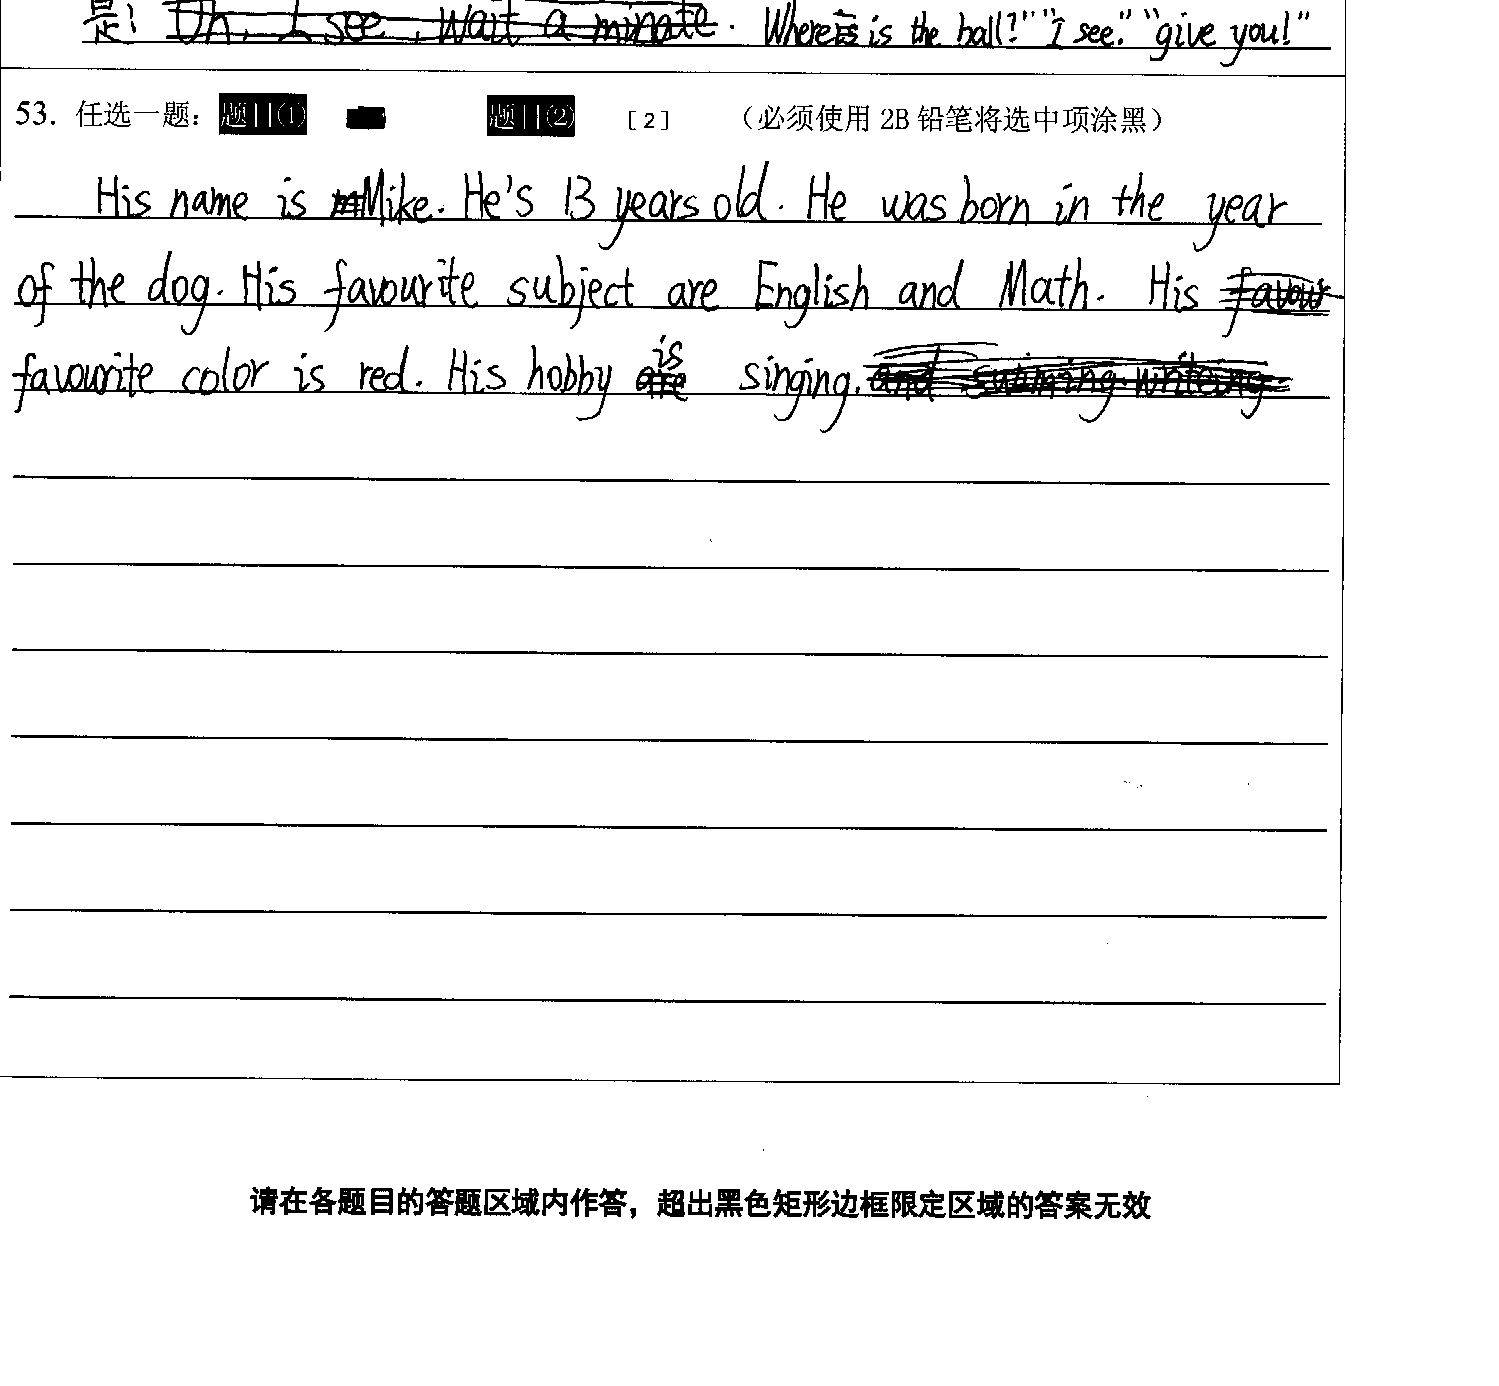 是! Oh, I see, Wait a minate. Where is is the ball?" "I see." "give you!"
53. 任选一题: 题目(1) 题目(2) [2] (必须使用 2B 铅笔将选中项涂黑)
His name is Mike. He's 13 years old. He was born in the year
of the dog. His favourite subject are English and Math. His favour
favourite color is red. His hobby are is singing. and
请在各题目的答题区域内作答，超出黑色矩形边框限定区域的答案无效